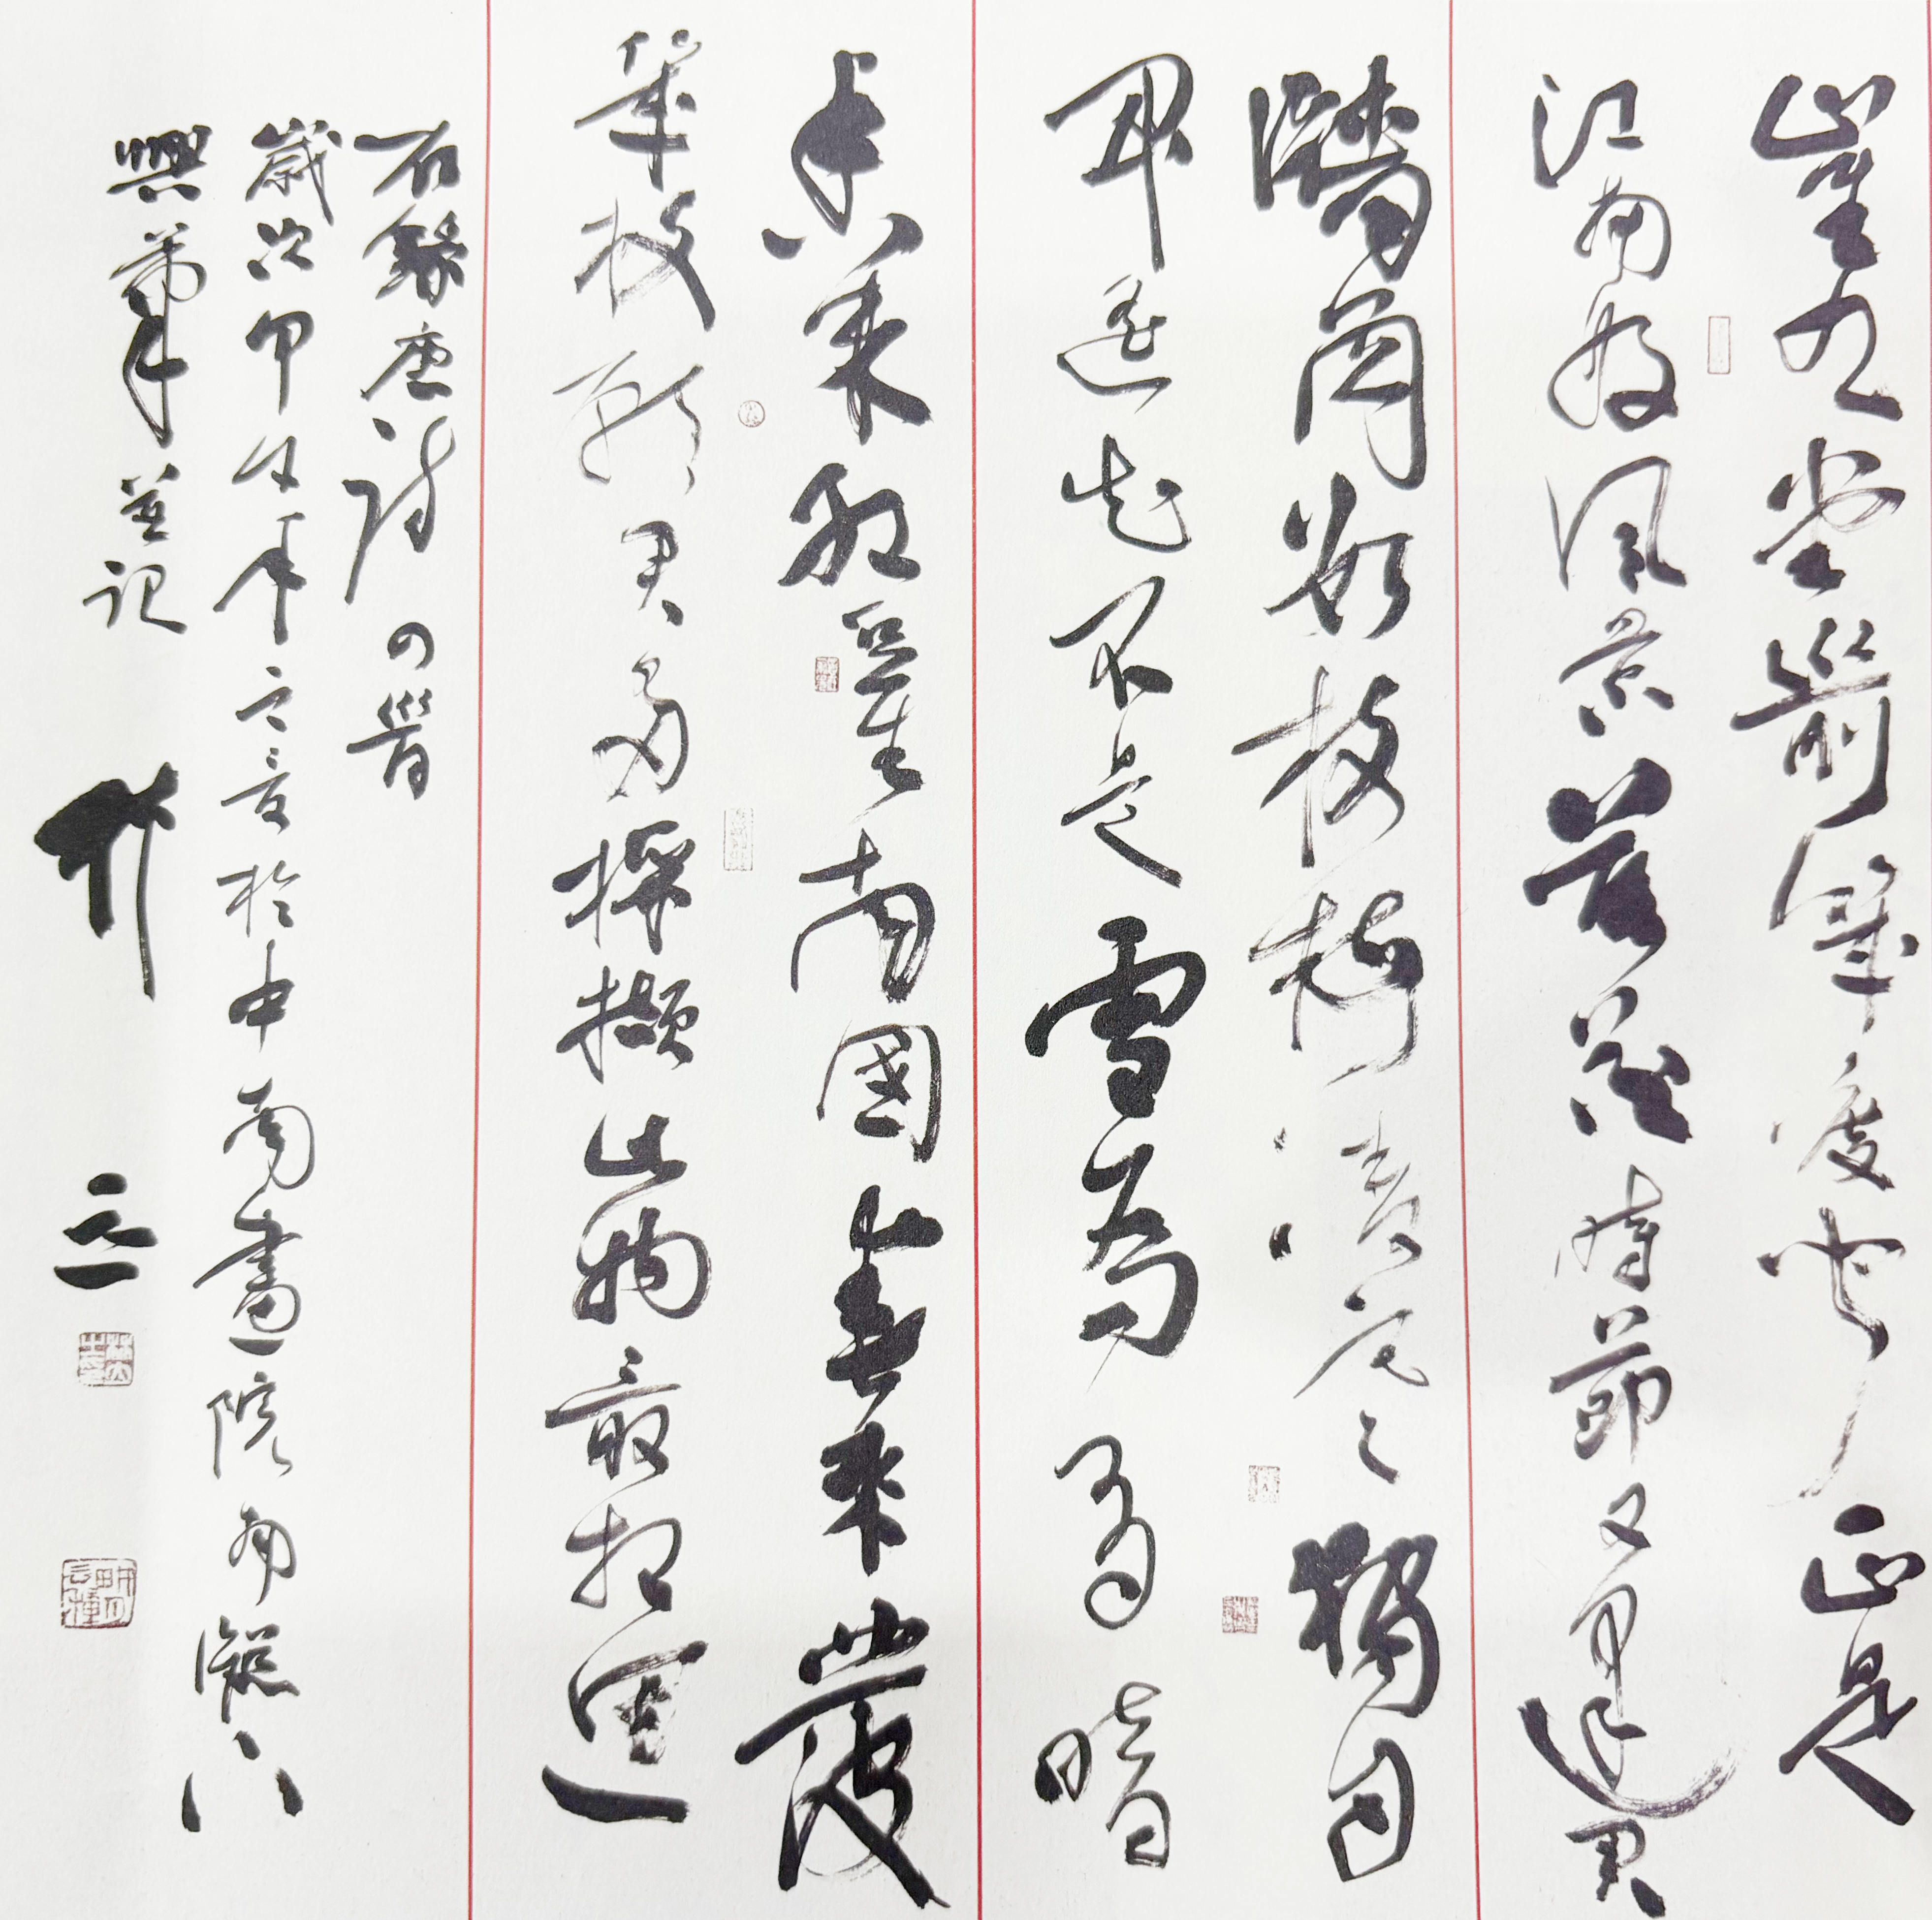 崔九堂前幾度聞正是
江南好風景落花時節又逢君
牆角數枝梅凌寒獨自
開遙知不是雪為有暗
香来紅豆生南國春來發
幾枝願君多採擷此物最相
右錄唐詩四首
歲次甲年之夏於中南畫院南窗下
興筆並記